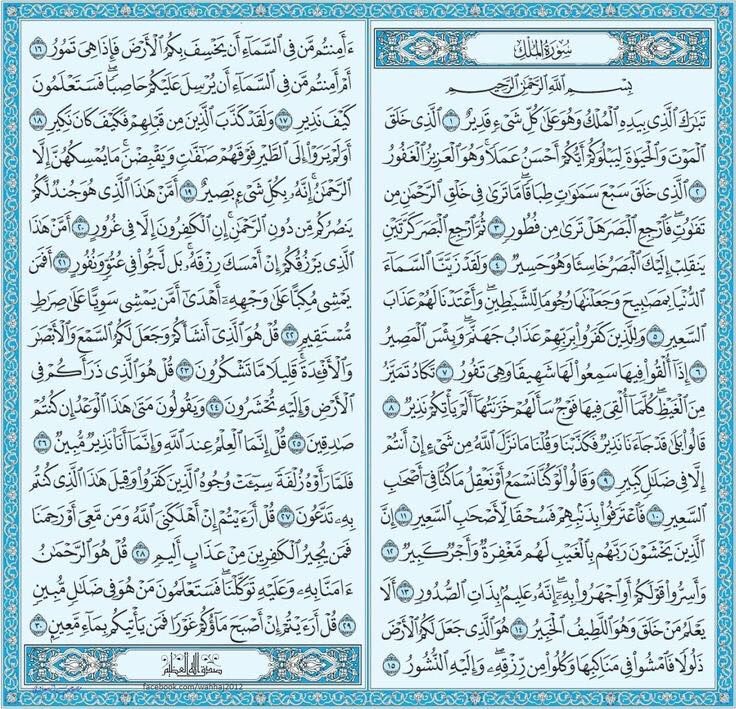 سُورَةُ الْمُلْكِ
بِسْمِ اللَّهِ الرَّحْمَٰنِ الرَّحِيمِ
تَبَارَكَ الَّذِي بِيَدِهِ الْمُلْكُ وَهُوَ عَلَىٰ كُلِّ شَيْءٍ قَدِيرٌ ١ الَّذِي خَلَقَ
الْمَوْتَ وَالْحَيَاةَ لِيَبْلُوَكُمْ أَيُّكُمْ أَحْسَنُ عَمَلًا وَهُوَ الْعَزِيزُ الْغَفُورُ
٢ الَّذِي خَلَقَ سَبْعَ سَمَاوَاتٍ طِبَاقًا مَّا تَرَىٰ فِي خَلْقِ الرَّحْمَٰنِ مِن
تَفَاوُتٍ فَارْجِعِ الْبَصَرَ هَلْ تَرَىٰ مِن فُطُورٍ ٣ ثُمَّ ارْجِعِ الْبَصَرَ كَرَّتَيْنِ
يَنقَلِبْ إِلَيْكَ الْبَصَرُ خَاسِئًا وَهُوَ حَسِيرٌ ٤ وَلَقَدْ زَيَّنَّا السَّمَاءَ
الدُّنْيَا بِمَصَابِيحَ وَجَعَلْنَاهَا رُجُومًا لِّلشَّيَاطِينِ وَأَعْتَدْنَا لَهُمْ عَذَابَ
السَّعِيرِ ٥ وَلِلَّذِينَ كَفَرُوا بِرَبِّهِمْ عَذَابُ جَهَنَّمَ وَبِئْسَ الْمَصِيرُ
٦ إِذَا أُلْقُوا فِيهَا سَمِعُوا لَهَا شَهِيقًا وَهِيَ تَفُورُ ٧ تَكَادُ تَمَيَّزُ
مِنَ الْغَيْظِ كُلَّمَا أُلْقِيَ فِيهَا فَوْجٌ سَأَلَهُمْ خَزَنَتُهَا أَلَمْ يَأْتِكُمْ نَذِيرٌ ٨
قَالُوا بَلَىٰ قَدْ جَاءَنَا نَذِيرٌ فَكَذَّبْنَا وَقُلْنَا مَا نَزَّلَ اللَّهُ مِن شَيْءٍ إِنْ أَنتُمْ
إِلَّا فِي ضَلَالٍ كَبِيرٍ ٩ وَقَالُوا لَوْ كُنَّا نَسْمَعُ أَوْ نَعْقِلُ مَا كُنَّا فِي أَصْحَابِ
السَّعِيرِ ١٠ فَاعْتَرَفُوا بِذَنبِهِمْ فَسُحْقًا لِّأَصْحَابِ السَّعِيرِ ١١ إِنَّ
الَّذِينَ يَخْشَوْنَ رَبَّهُم بِالْغَيْبِ لَهُم مَّغْفِرَةٌ وَأَجْرٌ كَبِيرٌ ١٢
وَأَسِرُّوا قَوْلَكُمْ أَوِ اجْهَرُوا بِهِ إِنَّهُ عَلِيمٌ بِذَاتِ الصُّدُورِ ١٣ أَلَا
يَعْلَمُ مَنْ خَلَقَ وَهُوَ اللَّطِيفُ الْخَبِيرُ ١٤ هُوَ الَّذِي جَعَلَ لَكُمُ الْأَرْضَ
ذَلُولًا فَامْشُوا فِي مَنَاكِبِهَا وَكُلُوا مِن رِّزْقِهِ وَإِلَيْهِ النُّشُورُ ١٥
ءَأَمِنتُم مَّن فِي السَّمَاءِ أَن يَخْسِفَ بِكُمُ الْأَرْضَ فَإِذَا هِيَ تَمُورُ ١٦
أَمْ أَمِنتُم مَّن فِي السَّمَاءِ أَن يُرْسِلَ عَلَيْكُمْ حَاصِبًا فَسَتَعْلَمُونَ
كَيْفَ نَذِيرِ ١٧ وَلَقَدْ كَذَّبَ الَّذِينَ مِن قَبْلِهِمْ فَكَيْفَ كَانَ نَكِيرِ ١٨
أَوَلَمْ يَرَوْا إِلَى الطَّيْرِ فَوْقَهُمْ صَافَّاتٍ وَيَقْبِضْنَ مَا يُمْسِكُهُنَّ إِلَّا
الرَّحْمَٰنُ إِنَّهُ بِكُلِّ شَيْءٍ بَصِيرٌ ١٩ أَمَّنْ هَٰذَا الَّذِي هُوَ جُندٌ لَّكُمْ
يَنصُرُكُم مِّن دُونِ الرَّحْمَٰنِ إِنِ الْكَافِرُونَ إِلَّا فِي غُرُورٍ ٢٠ أَمَّنْ هَٰذَا
الَّذِي يَرْزُقُكُمْ إِنْ أَمْسَكَ رِزْقَهُ بَل لَّجُّوا فِي عُتُوٍّ وَنُفُورٍ ٢١ أَفَمَن
يَمْشِي مُكِبًّا عَلَىٰ وَجْهِهِ أَهْدَىٰ أَمَّن يَمْشِي سَوِيًّا عَلَىٰ صِرَاطٍ
مُّسْتَقِيمٍ ٢٢ قُلْ هُوَ الَّذِي أَنشَأَكُمْ وَجَعَلَ لَكُمُ السَّمْعَ وَالْأَبْصَارَ
وَالْأَفْئِدَةَ قَلِيلًا مَّا تَشْكُرُونَ ٢٣ قُلْ هُوَ الَّذِي ذَرَأَكُمْ فِي
الْأَرْضِ وَإِلَيْهِ تُحْشَرُونَ ٢٤ وَيَقُولُونَ مَتَىٰ هَٰذَا الْوَعْدُ إِن كُنتُمْ
صَادِقِينَ ٢٥ قُلْ إِنَّمَا الْعِلْمُ عِندَ اللَّهِ وَإِنَّمَا أَنَا نَذِيرٌ مُّبِينٌ ٢٦
فَلَمَّا رَأَوْهُ زُلْفَةً سِيئَتْ وُجُوهُ الَّذِينَ كَفَرُوا وَقِيلَ هَٰذَا الَّذِي كُنتُم
بِهِ تَدَّعُونَ ٢٧ قُلْ أَرَءَيْتُمْ إِنْ أَهْلَكَنِيَ اللَّهُ وَمَن مَّعِيَ أَوْ رَحِمَنَا
فَمَن يُجِيرُ الْكَافِرِينَ مِنْ عَذَابٍ أَلِيمٍ ٢٨ قُلْ هُوَ الرَّحْمَٰنُ
ءَامَنَّا بِهِ وَعَلَيْهِ تَوَكَّلْنَا فَسَتَعْلَمُونَ مَنْ هُوَ فِي ضَلَالٍ مُّبِينٍ
٢٩ قُلْ أَرَءَيْتُمْ إِنْ أَصْبَحَ مَاؤُكُمْ غَوْرًا فَمَن يَأْتِيكُم بِمَاءٍ مَّعِينٍ ٣٠
صدق الله العظيم
facebook.com/wahhaj2012